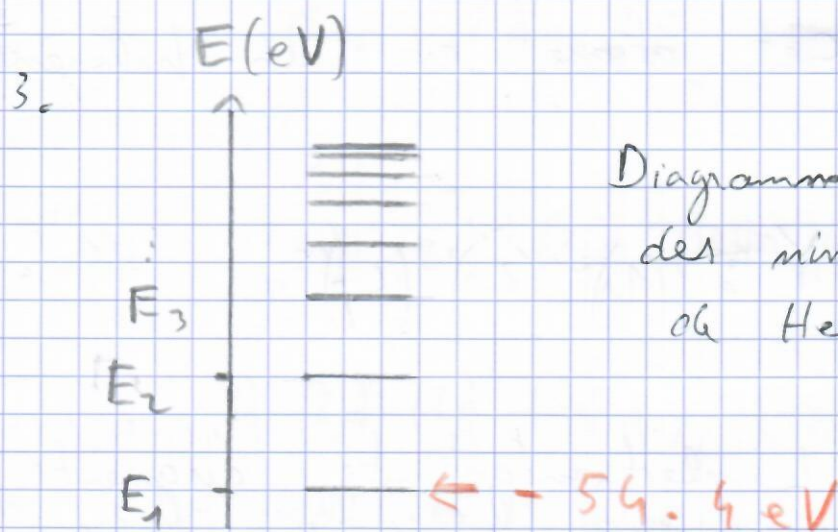 3.
E(eV)
Diagramme
des
de He
E3
E2
E1 ← - 54.4 eV